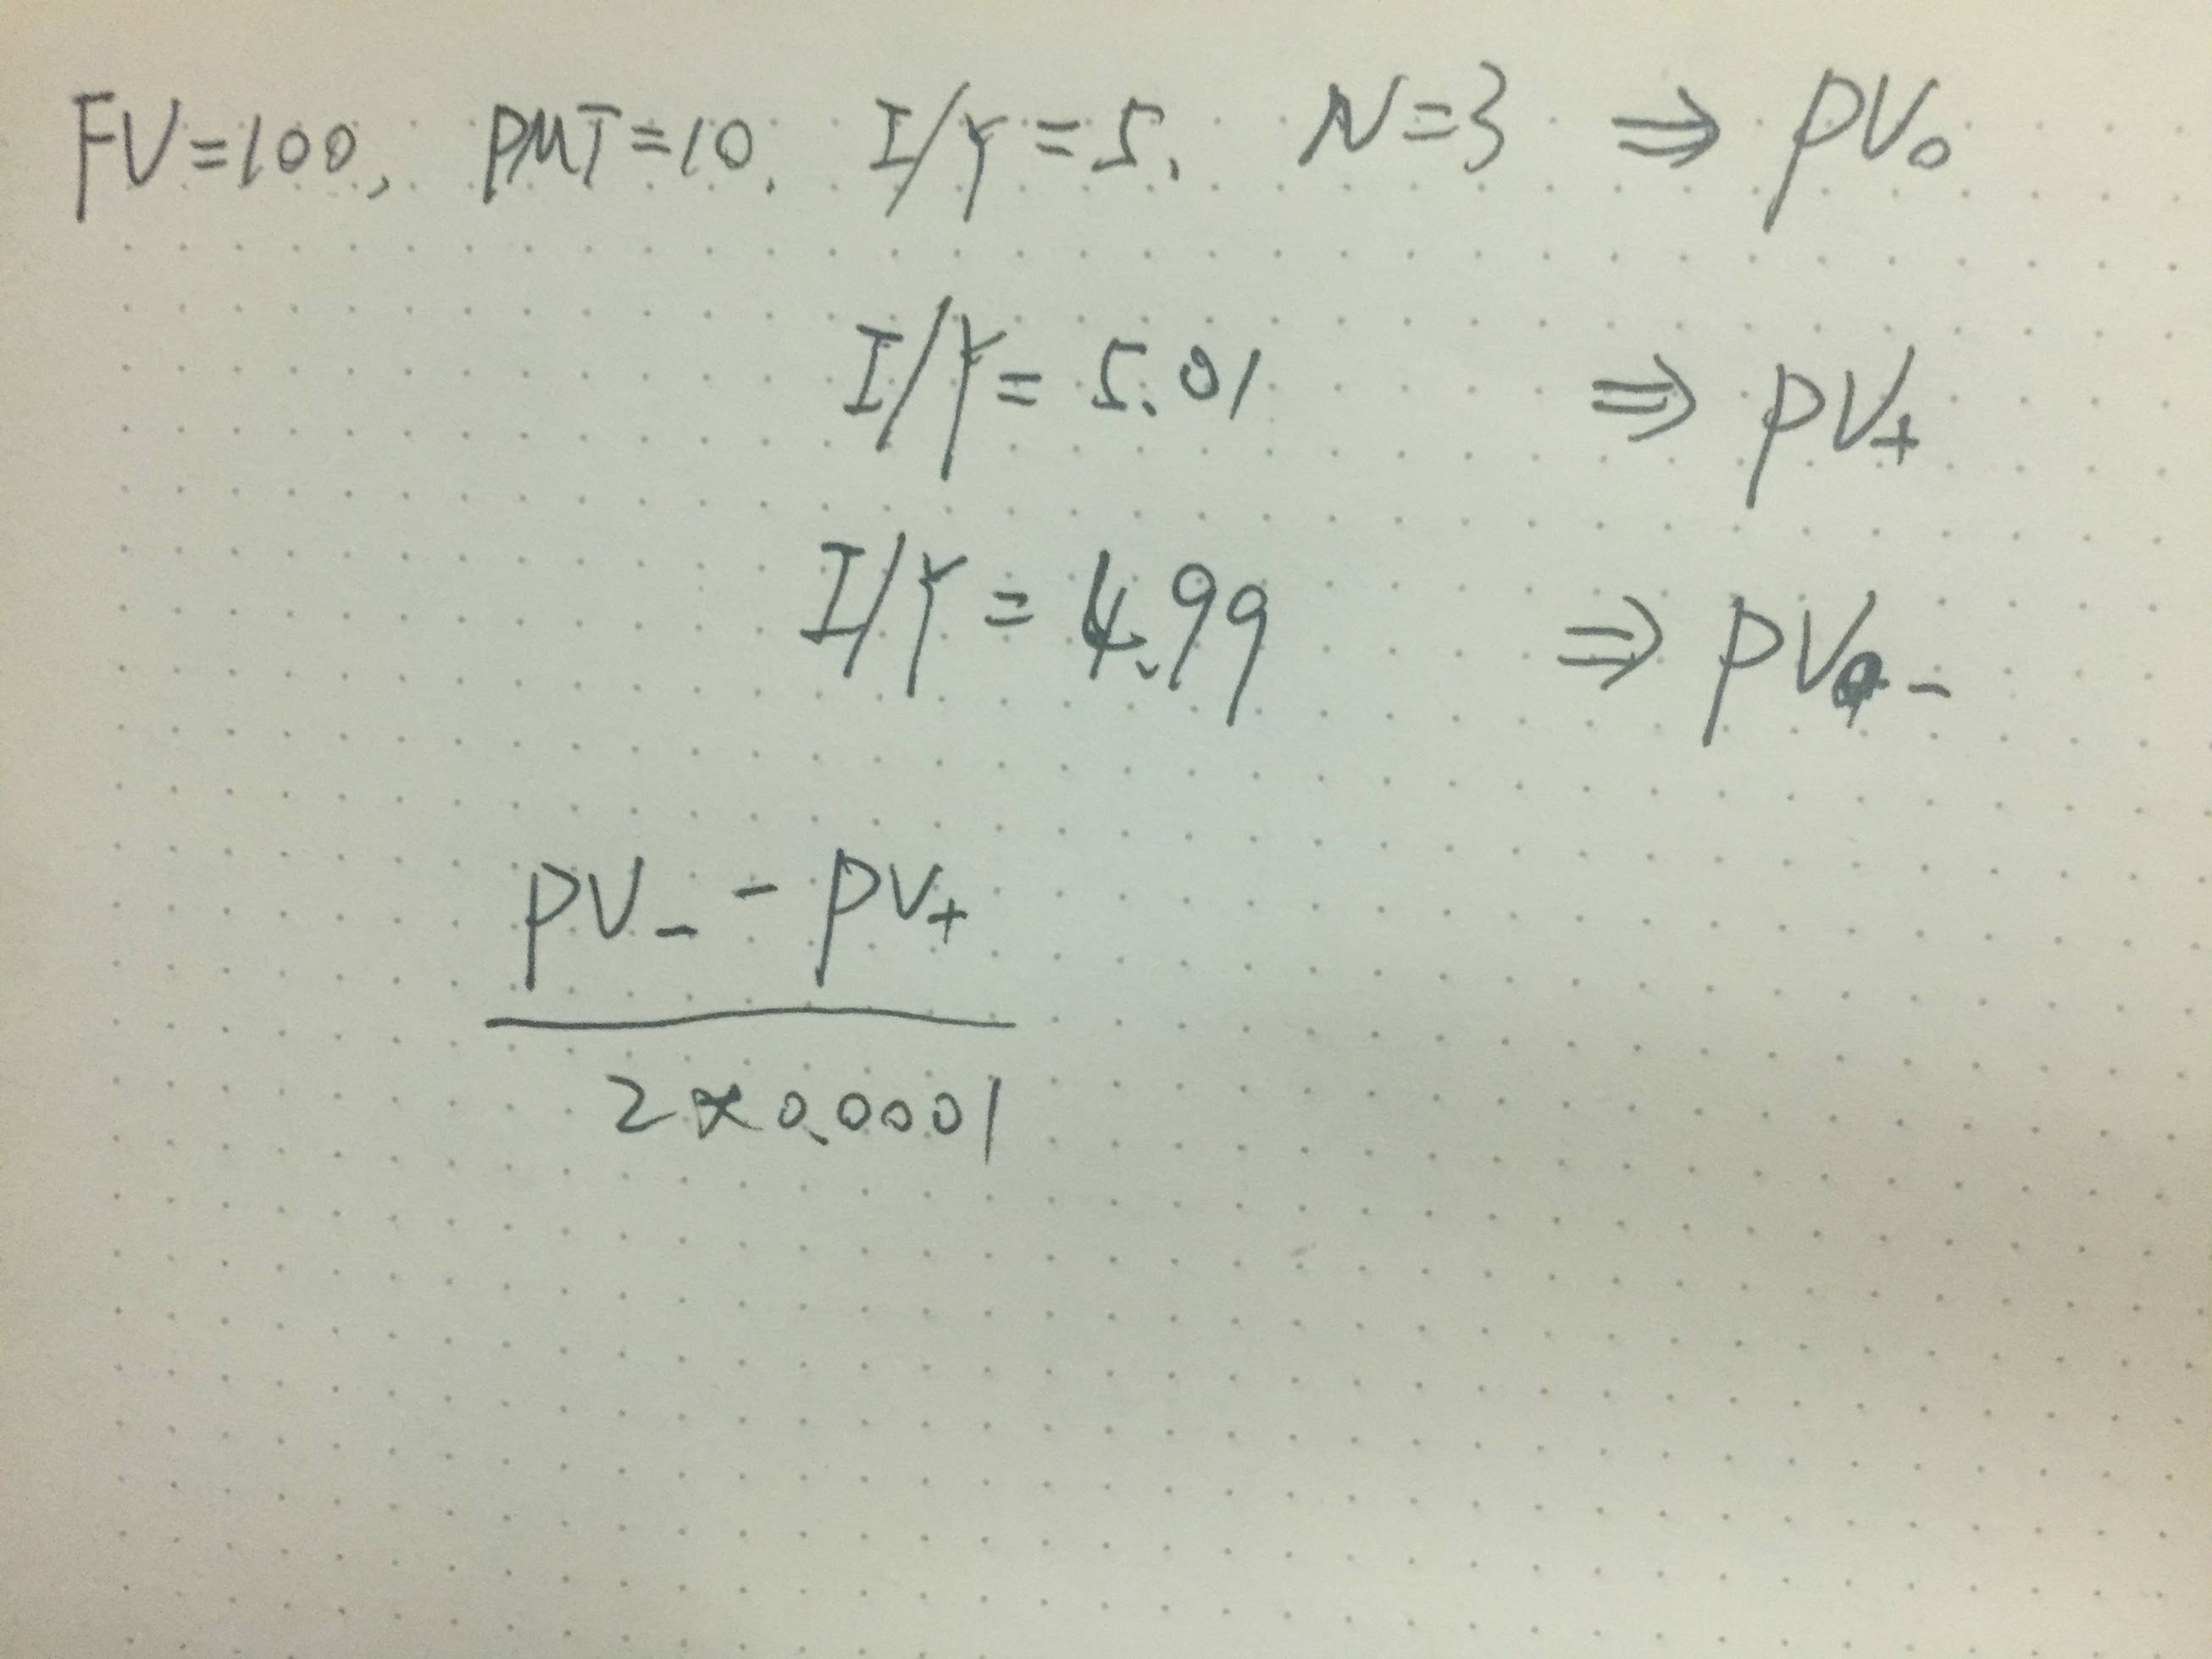 FV=100, PMT=10, I/Y=5, N=3 ⇒ PV₀
I/Y=5.01 ⇒ PV₊
I/Y=4.99 ⇒ PV₋
PV₋ - PV₊
2×0.0001